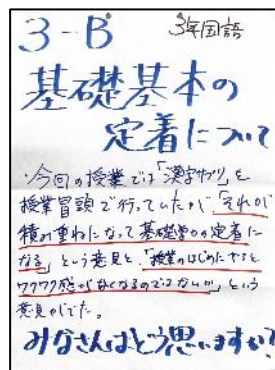 3-B 3年国語
基礎基本の
定着について
・今回の授業では「漢字サプリ」を
授業冒頭で行っていたが「それが
積み重ねになって基礎学力の定着に
なる」という意見と、「授業のはじめにやると
ワクワク感がなくなるのではないか」という
意見がでた。
みなさんはどう思いますか?